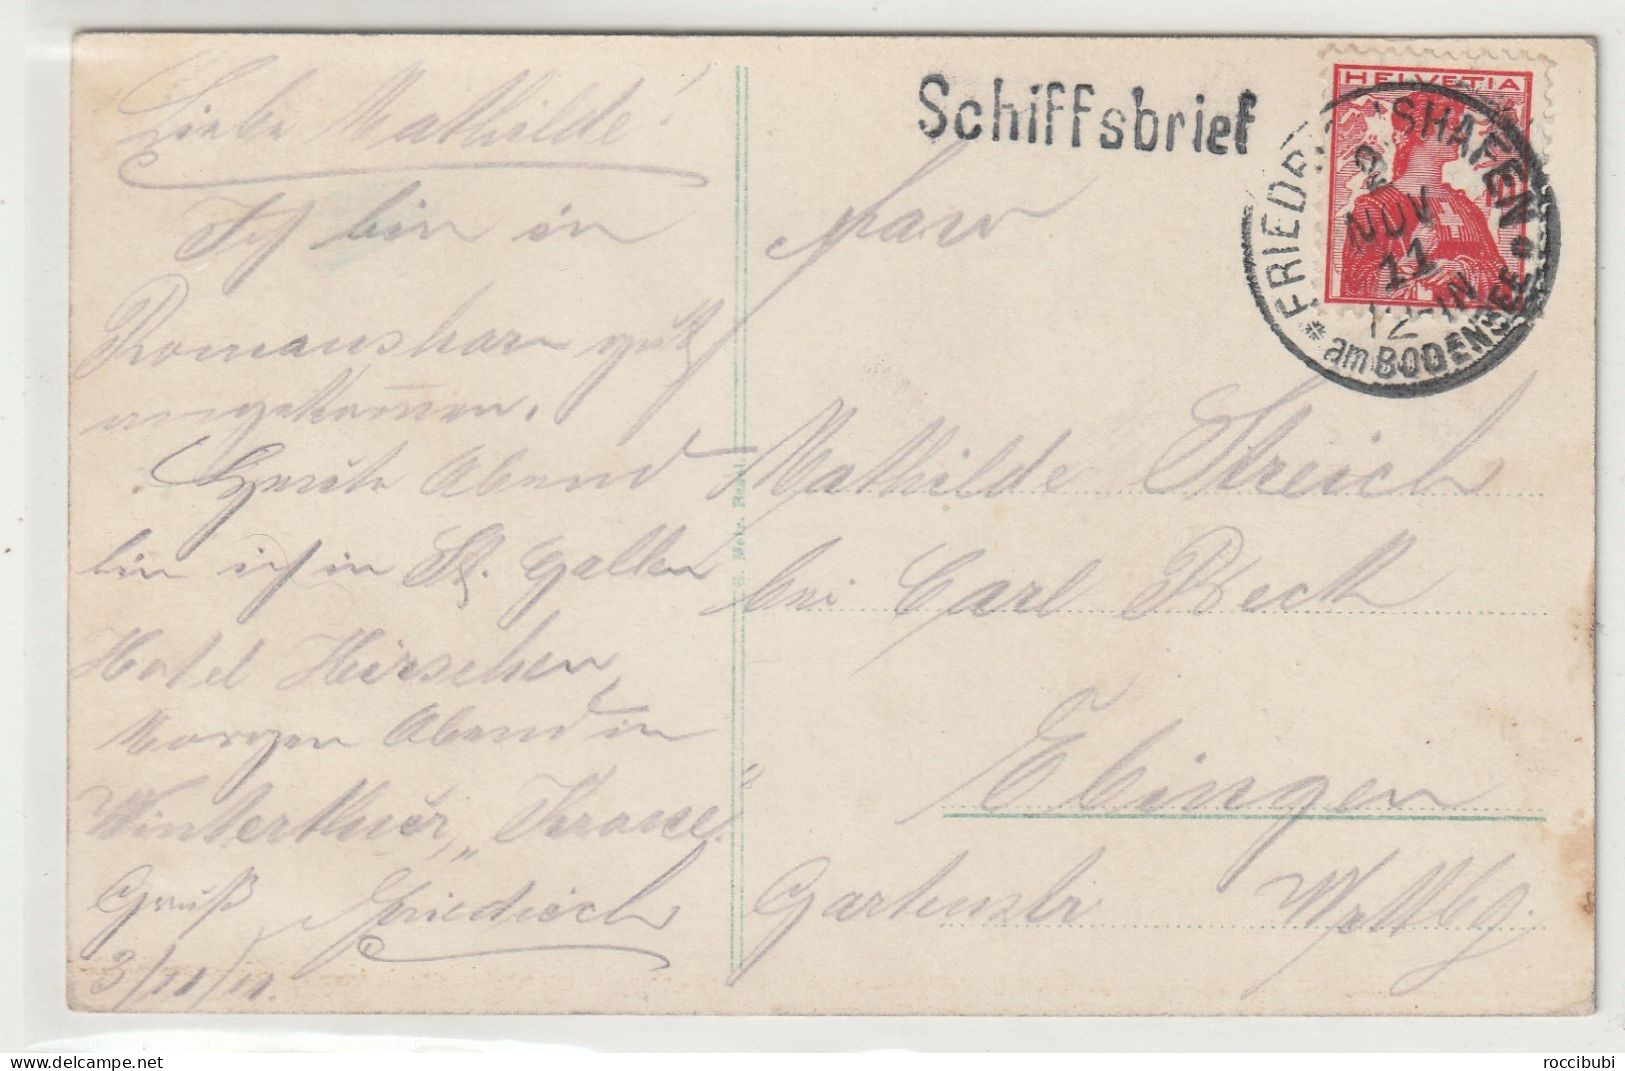 Liebe Mathilde!
Ich bin in
Romanshorn gut
angekommen.
Heute Abend
bin ich in St. Gallen
Hotel Hirschen,
Morgen Abend in
Winterthur, „Krone"
Gruß Friedrich
3/11/11.
Schiffsbrief
HELVETIA
FRIEDRICHSHAFEN
2
NOV
11
12-1N
* am BODENSEE
Mathilde Streich
bei Carl Beck
Ebingen
Gartenstr Wrttbg.
roccibubi